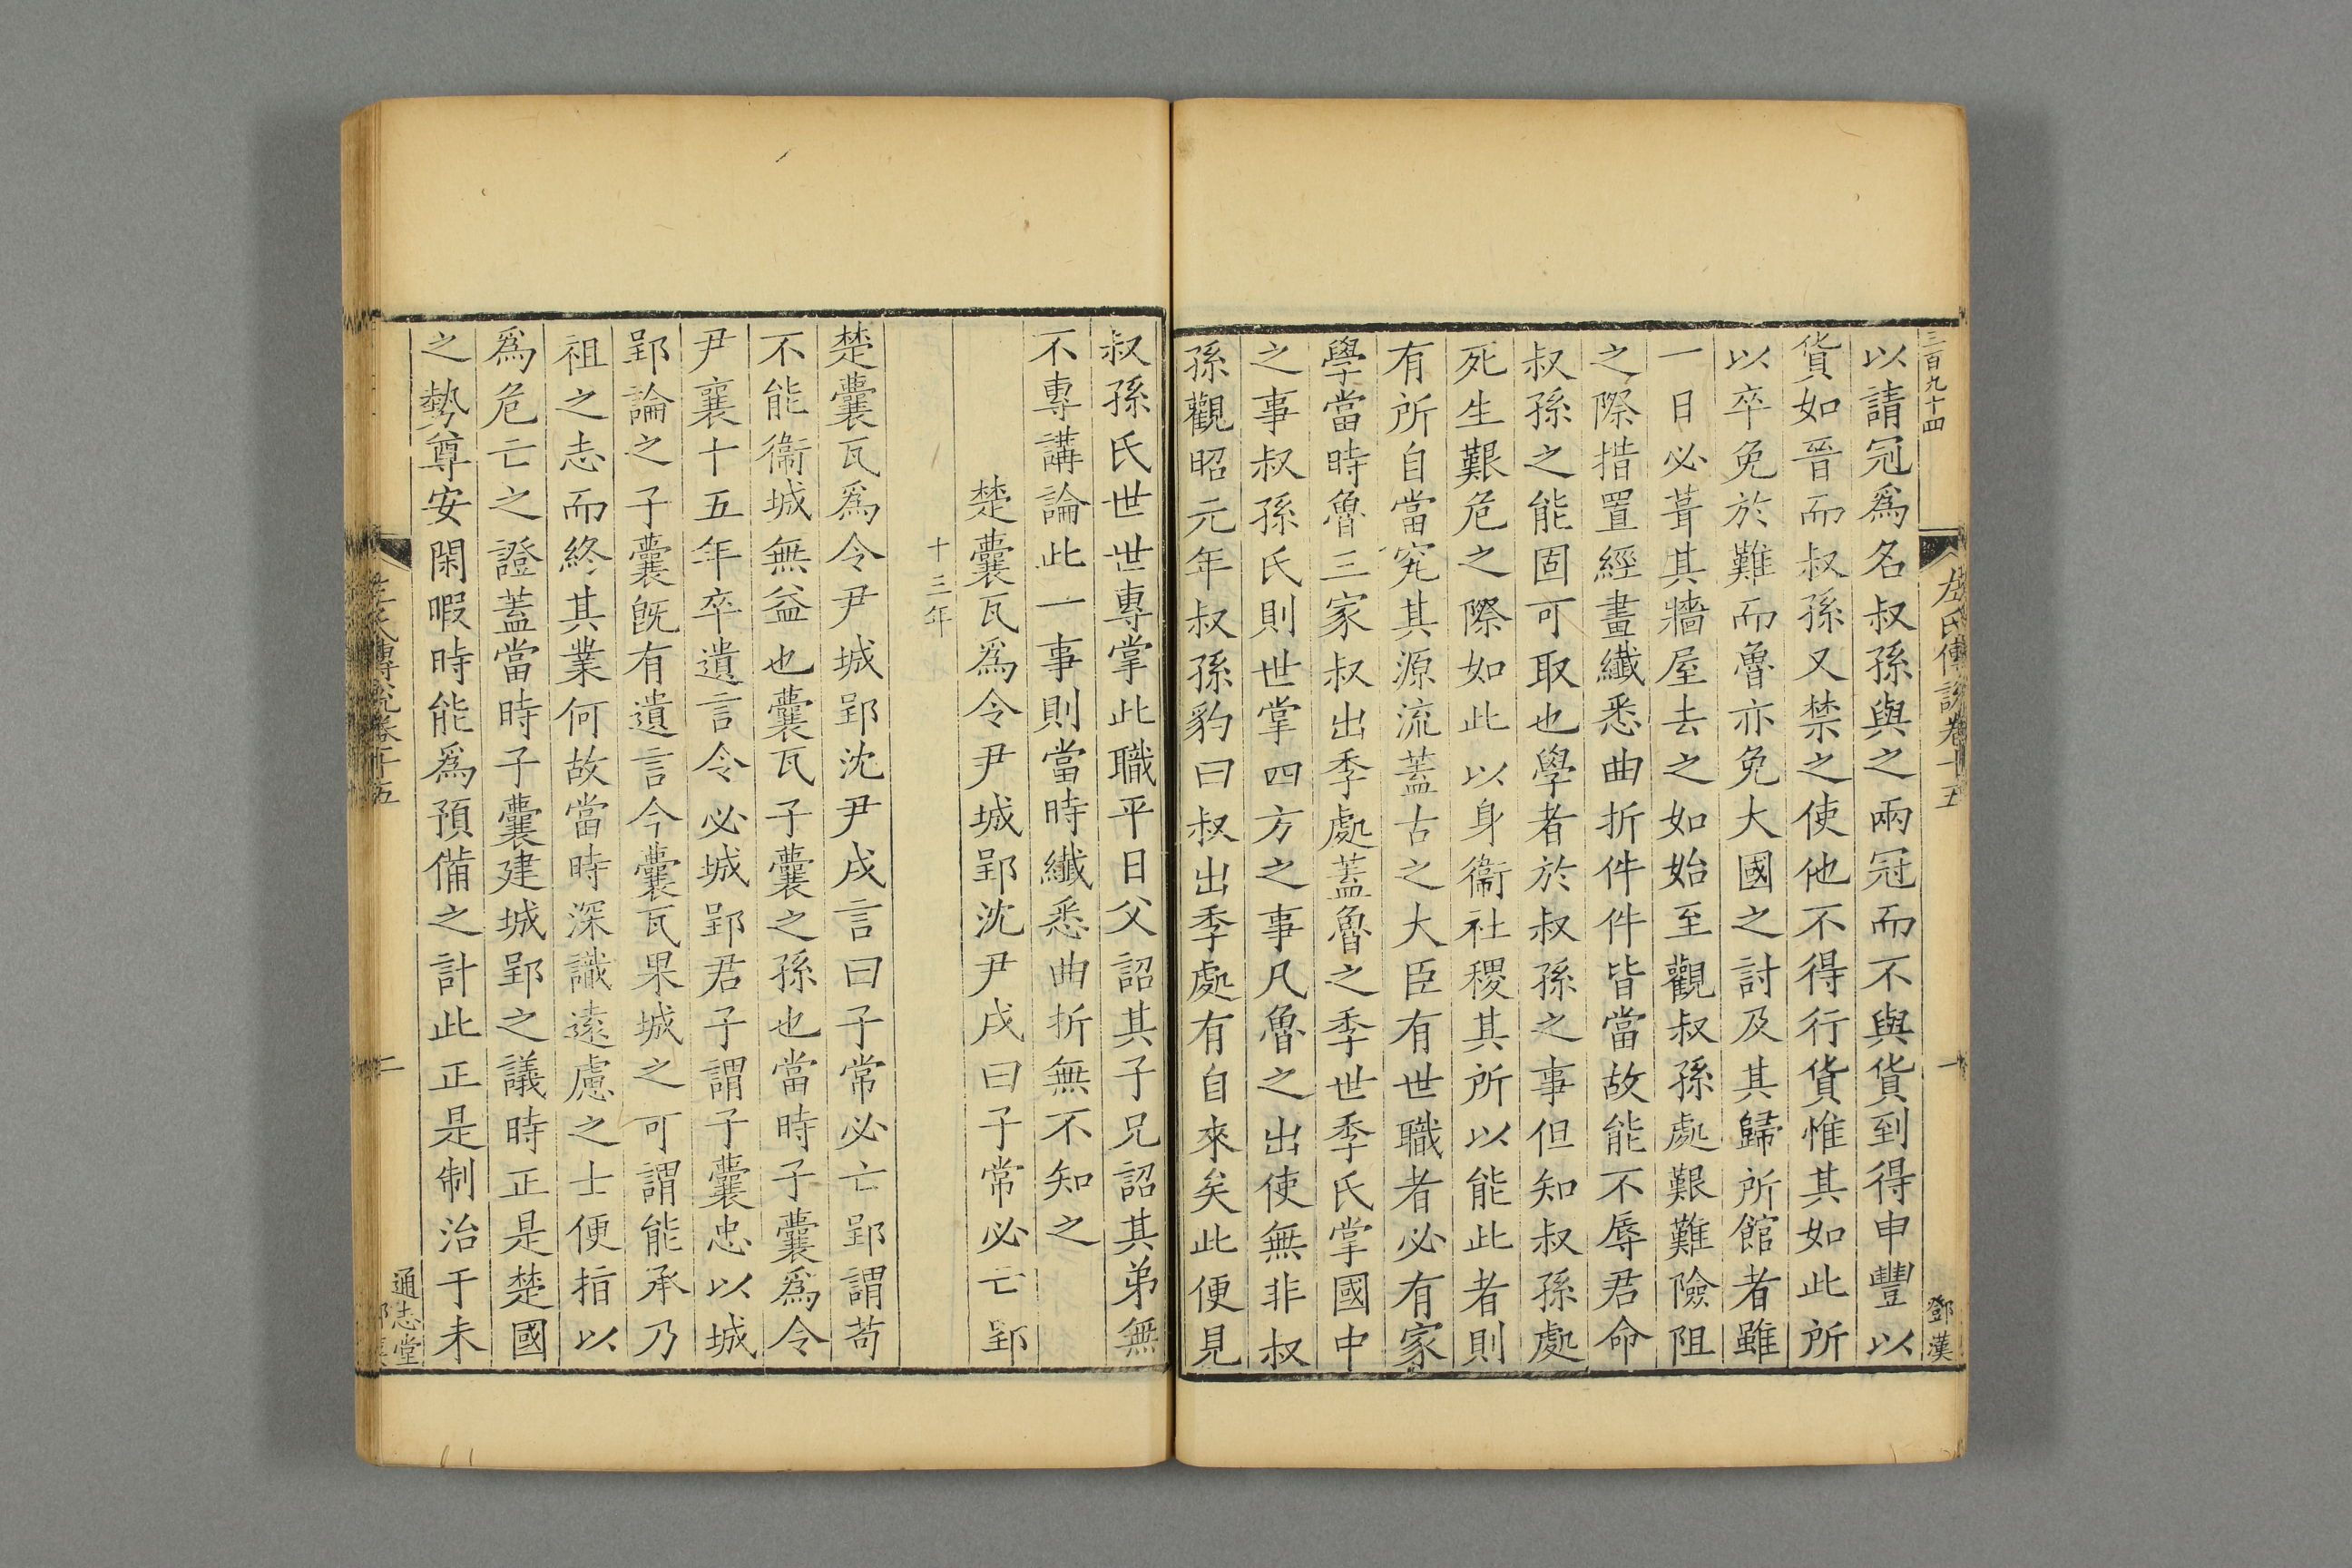 三百九十四
左氏傳說卷十五
一
鄧漢
以請冠爲名叔孫與之兩冠而不與貨到得申豐以
貨如晉而叔孫又禁之使他不得行貨惟其如此所
以卒免於難而魯亦免大國之討及其歸所館者雖
一日必葺其牆屋去之如始至觀叔孫處艱難險阻
之際措置經畫纖悉曲折件件皆當故能不辱君命
叔孫之能固可取也學者於叔孫之事但知叔孫處
死生艱危之際如此以身衞社稷其所以能此者則
有所自當究其源流蓋古之大臣有世職者必有家
學當時魯三家叔出季處蓋魯之季世季氏掌國中
之事叔孫氏則世掌四方之事凡魯之出使無非叔
孫觀昭元年叔孫豹曰叔出季處有自來矣此便見
叔孫氏世世專掌此職平日父詔其子兄詔其弟無
不專講論此一事則當時纖悉曲折無不知之
楚囊瓦爲令尹城郢沈尹戌曰子常必亡郢
十三年
楚囊瓦爲令尹城郢沈尹戌言曰子常必亡郢謂苟
不能衞城無益也囊瓦子囊之孫也當時子囊爲令
尹襄十五年卒遺言令必城郢君子謂子囊忠以城
郢論之子囊旣有遺言今囊瓦果城之可謂能承乃
祖之志而終其業何故當時深識遠慮之士便指以
爲危亡之證蓋當時子囊建城郢之議時正是楚國
之勢尊安閑暇時能爲預備之計此正是制治于未
左氏傳說卷十五
二
通志堂